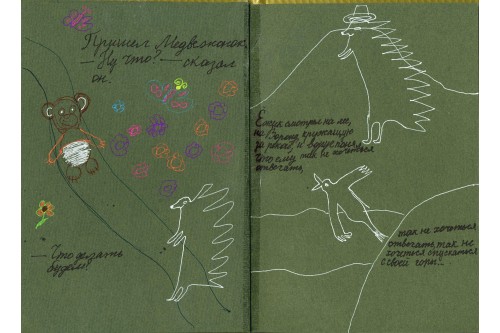 Пришел Медвежонок.
— Ну что? — сказал
он.
— Что делать
будем?
Ёжик смотрел на лес,
на Ворону, кружащую
за рекой, и вдруг понял,
что ему так не хочется
отвечать,
так не хочется
отвечать, так не
хочется спускаться
с своей горы...